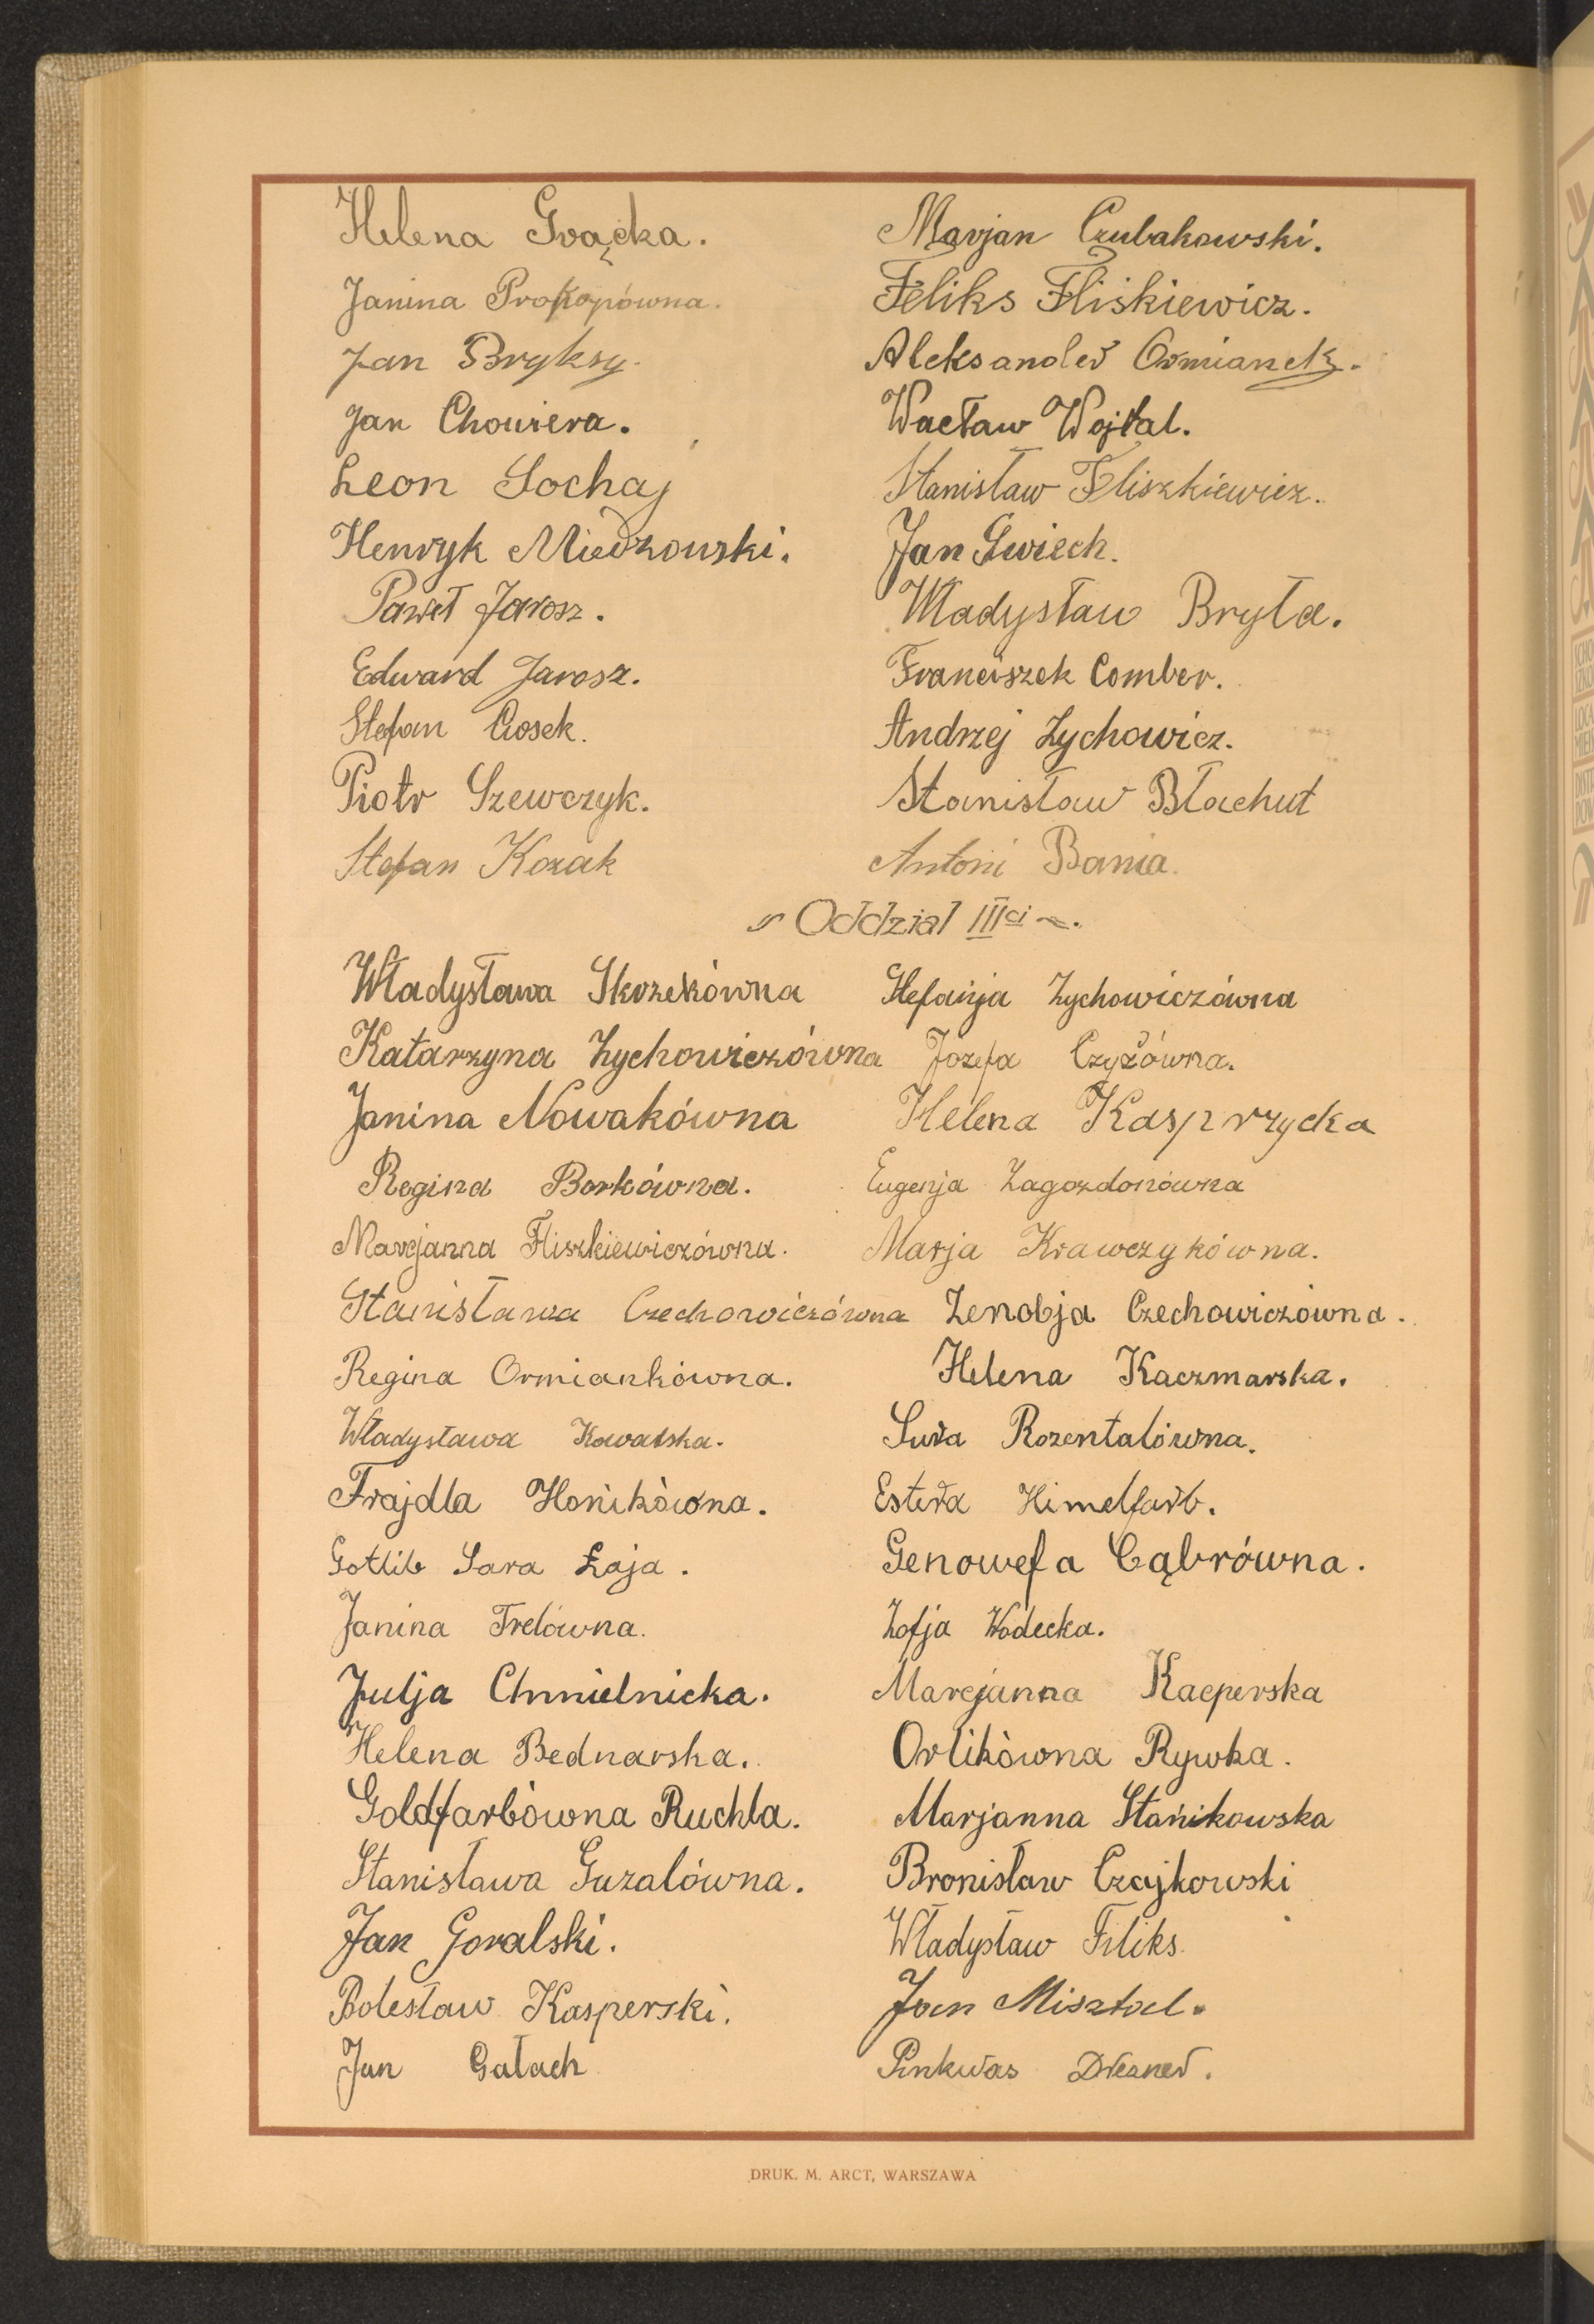 Helena Grącka.
Janina Prokopówna.
Jan Bryksy.
Jan Chowiera.
Leon Sochaj
Henryk Miedzowski.
Paweł Jarosz.
Edward Jarosz.
Stefan Ciosek.
Piotr Szewczyk.
Stefan Kozak
Marjan Czubakowski.
Feliks Fliśkiewicz.
Aleksander Ormianek.
Wacław Wojtal.
Stanisław Fliszkiewicz.
Jan Gwiech.
Władysław Bryła.
Franciszek Comber.
Andrzej Zychowicz.
Stanisław Błachut
Antoni Bania.
Oddział IIIci
Władysława Skrzekówna
Katarzyna Zychowiczówna
Janina Nowakówna
Regina Borkówna.
Marcjanna Fliszkiewiczówna.
Stanisława Czechowiczówna
Regina Ormiankówna.
Władysława Kowalska.
Frajdla Honikówna.
Gotlib Sara Łaja.
Janina Trelówna.
Julja Chmielnicka.
Helena Bednarska.
Goldfarbówna Ruchla.
Stanisława Guzalówna.
Jan Goralski.
Bolesław Kasperski.
Jan Gałach
Stefanja Zychowiczówna
Józefa Czyżówna.
Helena Kasprzycka
Eugenja Zagozdonówna
Marja Krawczykówna.
Zenobja Czechowiczówna.
Helena Kaczmarska.
Sura Rozentalówna.
Estera Himelfarb.
Genowefa Cąbrówna.
Zofja Wodecka.
Marcjanna Kacperska
Orlikówna Rywka.
Marjanna Stanikowska
Bronisław Czajkowski
Władysław Filiks.
Jan Misztal.
Pinkwas Drezner.
DRUK. M. ARCT, WARSZAWA